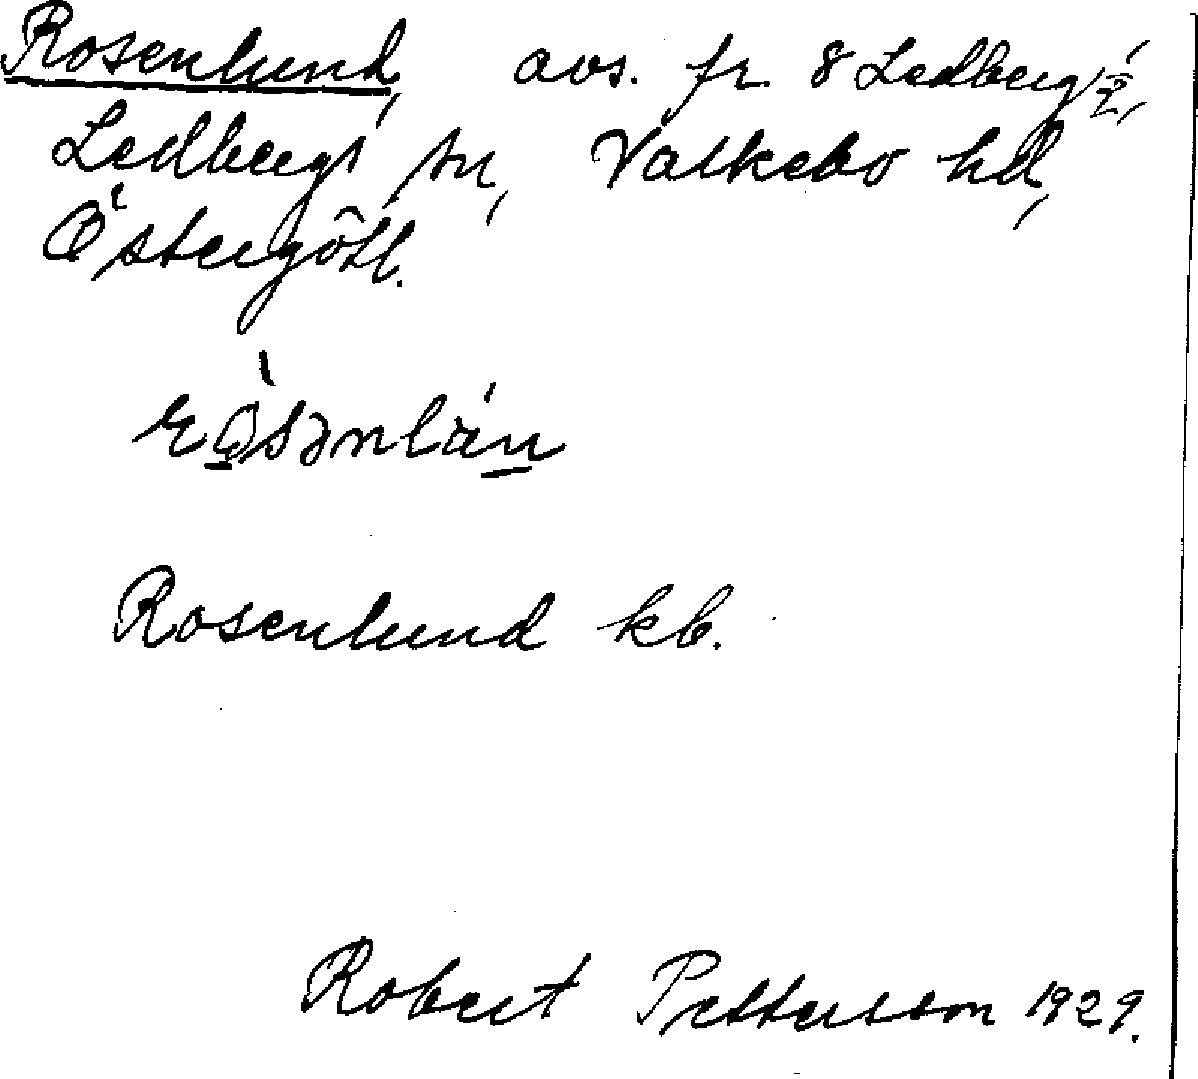 Rosenlund, avs. fr. 8 Ledberg 1/2,
Ledbergs sn, Valkebo hd,
Östergötl.
Rosenlund kb.
Robert Pettersson 1929.